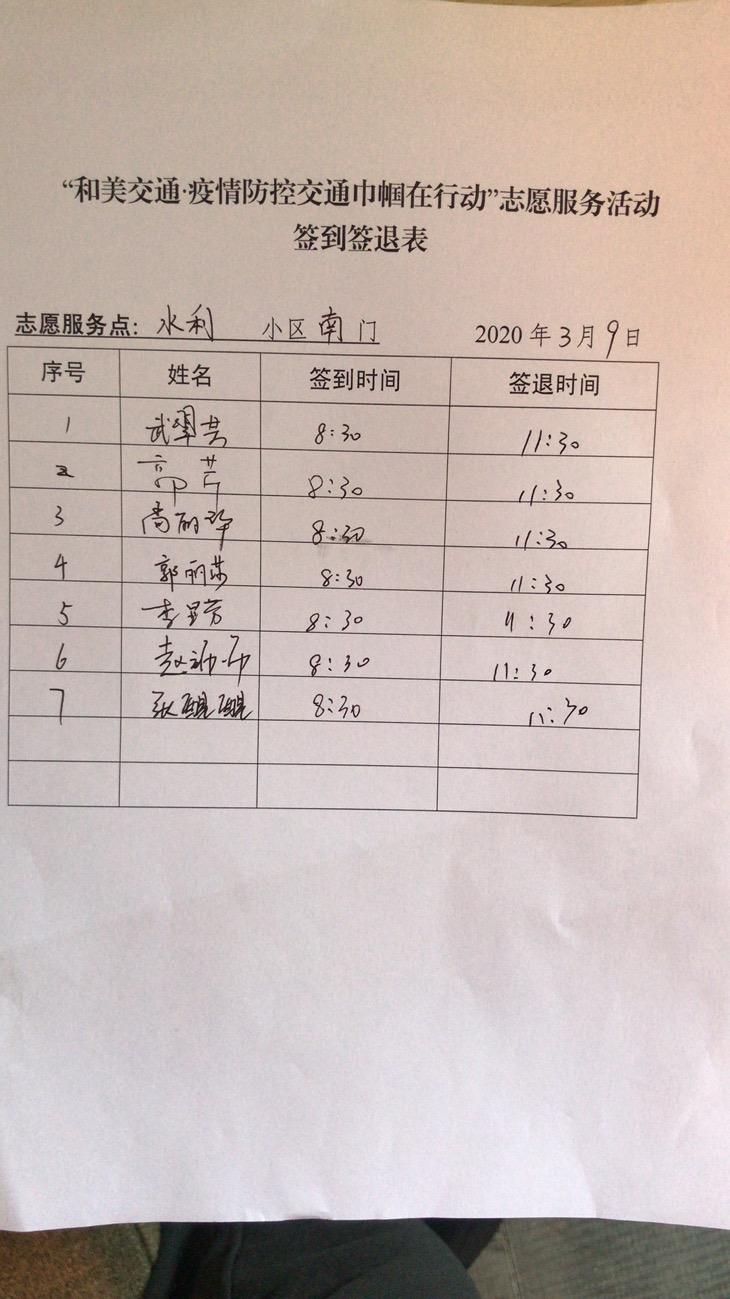 “和美交通·疫情防控交通巾帼在行动”志愿服务活动
签到签退表
志愿服务点：水利 小区南门 2020年3月9日
序号 姓名 签到时间 签退时间
1 武 8:30 11:30
2 郭芹 8:30 11:30
3 丽 8:30 11:30
4 郭丽莎 8:30 11:30
5 李 芳 8:30 11:30
6 赵 8:30 11:30
7 张醒醒 8:30 11:30